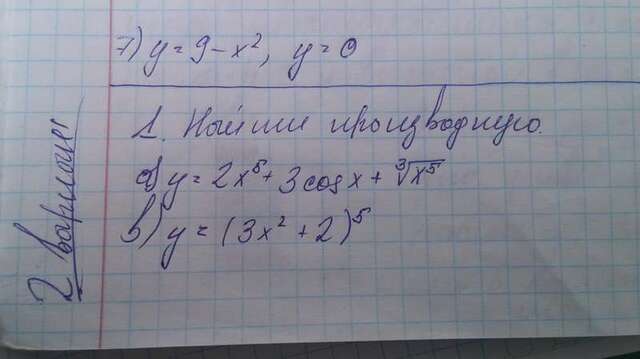 7) y = 9 - x², y = 0
2 вариант
1. Найти производную.
а) y = 2x⁵ + 3cos x + ∛x⁵
в) y = (3x² + 2)⁵